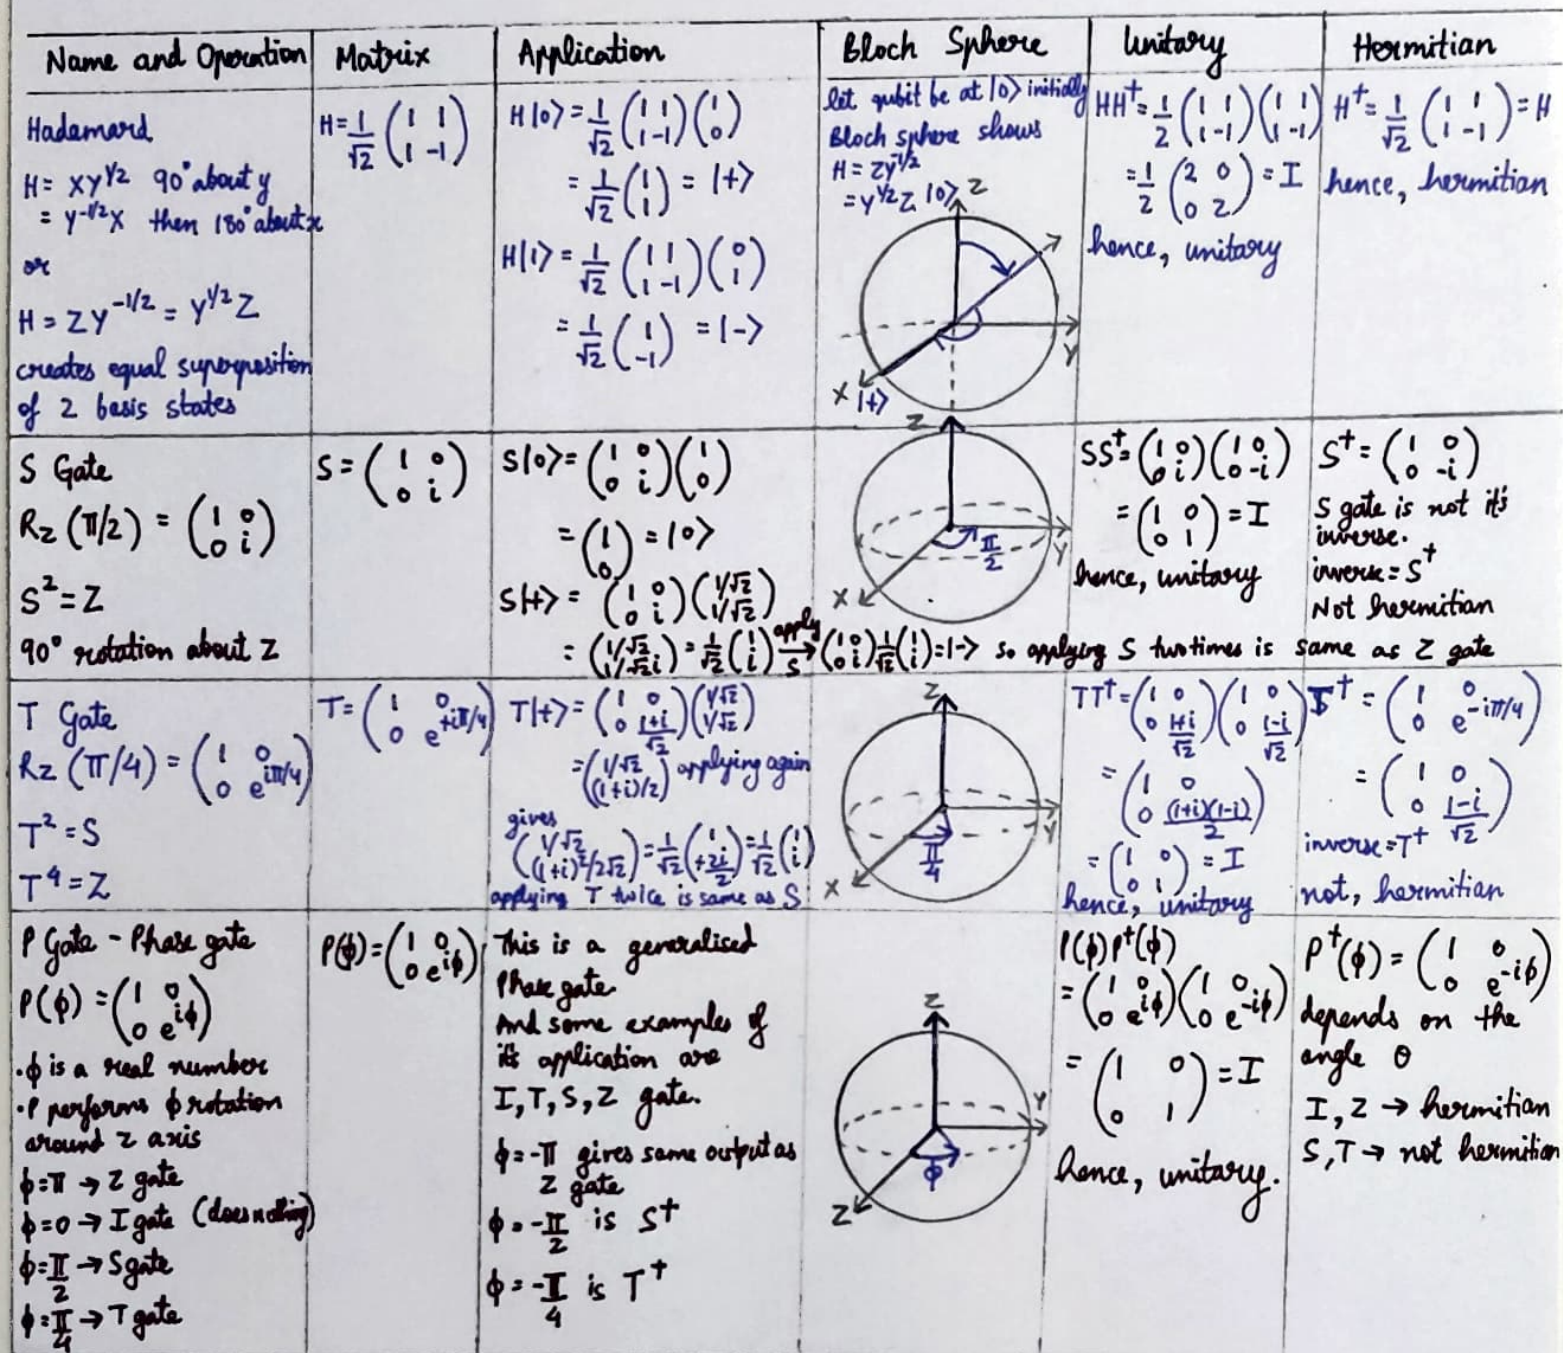 Name and Operation | Matrix | Application | Bloch Sphere | Unitary | Hermitian
Hadamard
H = XY^{1/2} 90° about y
= Y^{-1/2}X then 180° about x
or
H = ZY^{-1/2} = Y^{1/2}Z
creates equal superposition
of 2 basis states
H = 1/√2 (1 1; 1 -1)
H|0> = 1/√2 (1 1; 1 -1)(1; 0)
= 1/√2 (1; 1) = |+>
H|1> = 1/√2 (1 1; 1 -1)(0; 1)
= 1/√2 (1; -1) = |->
let qubit be at |0> initially
Bloch sphere shows
H = ZY^{-1/2}
= Y^{1/2}Z |0> Z
Y
X |+>
HH† = 1/2 (1 1; 1 -1)(1 1; 1 -1)
= 1/2 (2 0; 0 2) = I
hence, unitary
H† = 1/√2 (1 1; 1 -1) = H
hence, hermitian
S Gate
Rz (π/2) = (1 0; 0 i)
S² = Z
90° rotation about Z
S = (1 0; 0 i)
S|0> = (1 0; 0 i)(1; 0)
= (1; 0) = |0>
S|+> = (1 0; 0 i)(1/√2; 1/√2)
= (1/√2; 1/√2 i) = 1/√2 (1; i) apply S → (1 0; 0 i) 1/√2 (1; i) = |-> so applying S two times is same as Z gate
Z
π/2
Y
X
SS† = (1 0; 0 i)(1 0; 0 -i)
= (1 0; 0 1) = I
hence, unitary
S† = (1 0; 0 -i)
S gate is not it's
inverse.
inverse = S†
Not hermitian
T Gate
Rz (π/4) = (1 0; 0 e^{iπ/4})
T² = S
T⁴ = Z
T = (1 0; 0 e^{+iπ/4})
T|+> = (1 0; 0 1+i/√2)(1/√2; 1/√2)
= (1/√2; (1+i)/2) applying again
gives
(1/√2; (1+i)²/2√2) = 1/√2 (1; +2i/2) = 1/√2 (1; i)
applying T twice is same as S
Z
Y
π/4
X
TT† = (1 0; 0 1+i/√2)(1 0; 0 1-i/√2)
= (1 0; 0 (1+i)(1-i)/2)
= (1 0; 0 1) = I
hence, unitary
T† = (1 0; 0 e^{-iπ/4})
= (1 0; 0 1-i/√2)
inverse = T†
not, hermitian
P Gate - Phase gate
P(ϕ) = (1 0; 0 e^{iϕ})
· ϕ is a real number
· P performs ϕ rotation
around z axis
ϕ = π → Z gate
ϕ = 0 → I gate (does nothing)
ϕ = π/2 → S gate
ϕ = π/4 → T gate
P(ϕ) = (1 0; 0 e^{iϕ})
This is a generalised
Phase gate.
And some examples of
it's application are
I, T, S, Z gate.
ϕ = -π gives same output as
Z gate
ϕ = -π/2 is S†
ϕ = -π/4 is T†
Z
Y
ϕ
Z
P(ϕ)P†(ϕ)
= (1 0; 0 e^{iϕ})(1 0; 0 e^{-iϕ})
= (1 0; 0 1) = I
hence, unitary.
P†(ϕ) = (1 0; 0 e^{-iϕ})
depends on the
angle θ
I, Z → hermitian
S, T → not hermitian